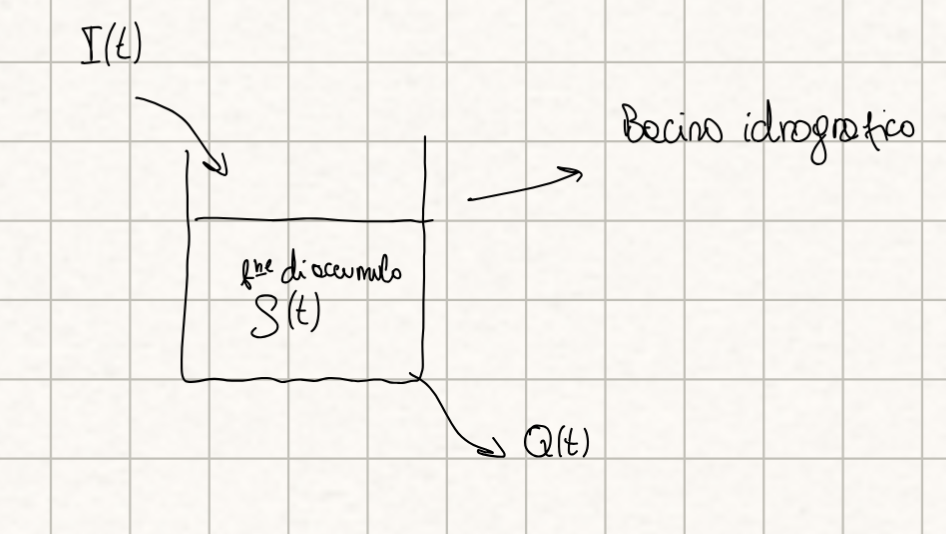 I(t)
Bacino idrografico
fne di accumulo
S(t)
Q(t)